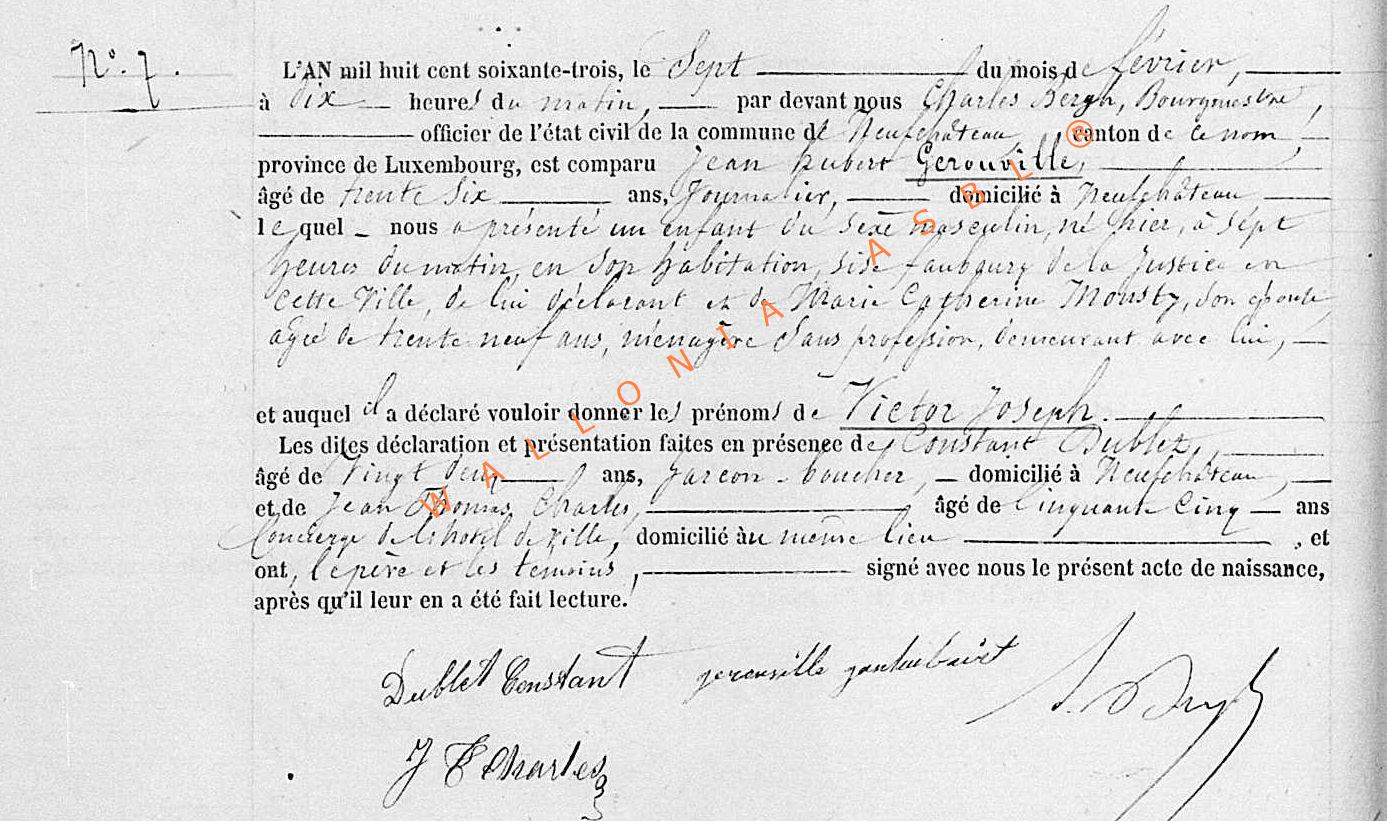 N°. 7.
L'AN mil huit cent soixante-trois, le Sept du mois de février,
à dix heures du matin, par devant nous Charles Bergh, Bourgmestre,
officier de l'état civil de la commune de Neufchâteau, canton de ce nom,
province de Luxembourg, est comparu Jean hubert Gerouville,
âgé de trente six ans, Journalier, domicilié à Neufchâteau,
lequel nous a présenté un enfant du sexe masculin, né hier, à sept
heures du matin, en son habitation, sise faubourg de la Justice en
cette Ville, de lui déclarant et de Marie Catherine Mousty, son épouse
agée de trente neuf ans, ménagère sans profession, demeurant avec lui,
et auquel il a déclaré vouloir donner les prénoms de Victor Joseph.
Les dites déclaration et présentation faites en présence de Constant Dublet,
âgé de Vingt deux ans, garçon-boucher, domicilié à Neufchâteau,
et de Jean Thomas Charles, âgé de Cinquante Cinq ans
Concierge de l'hotel de Ville, domicilié au même lieu, et
ont, le père et les temoins, signé avec nous le présent acte de naissance,
après qu'il leur en a été fait lecture.
Dublet Constant gerouville
J T Charles
WALLONIA ASBL ®